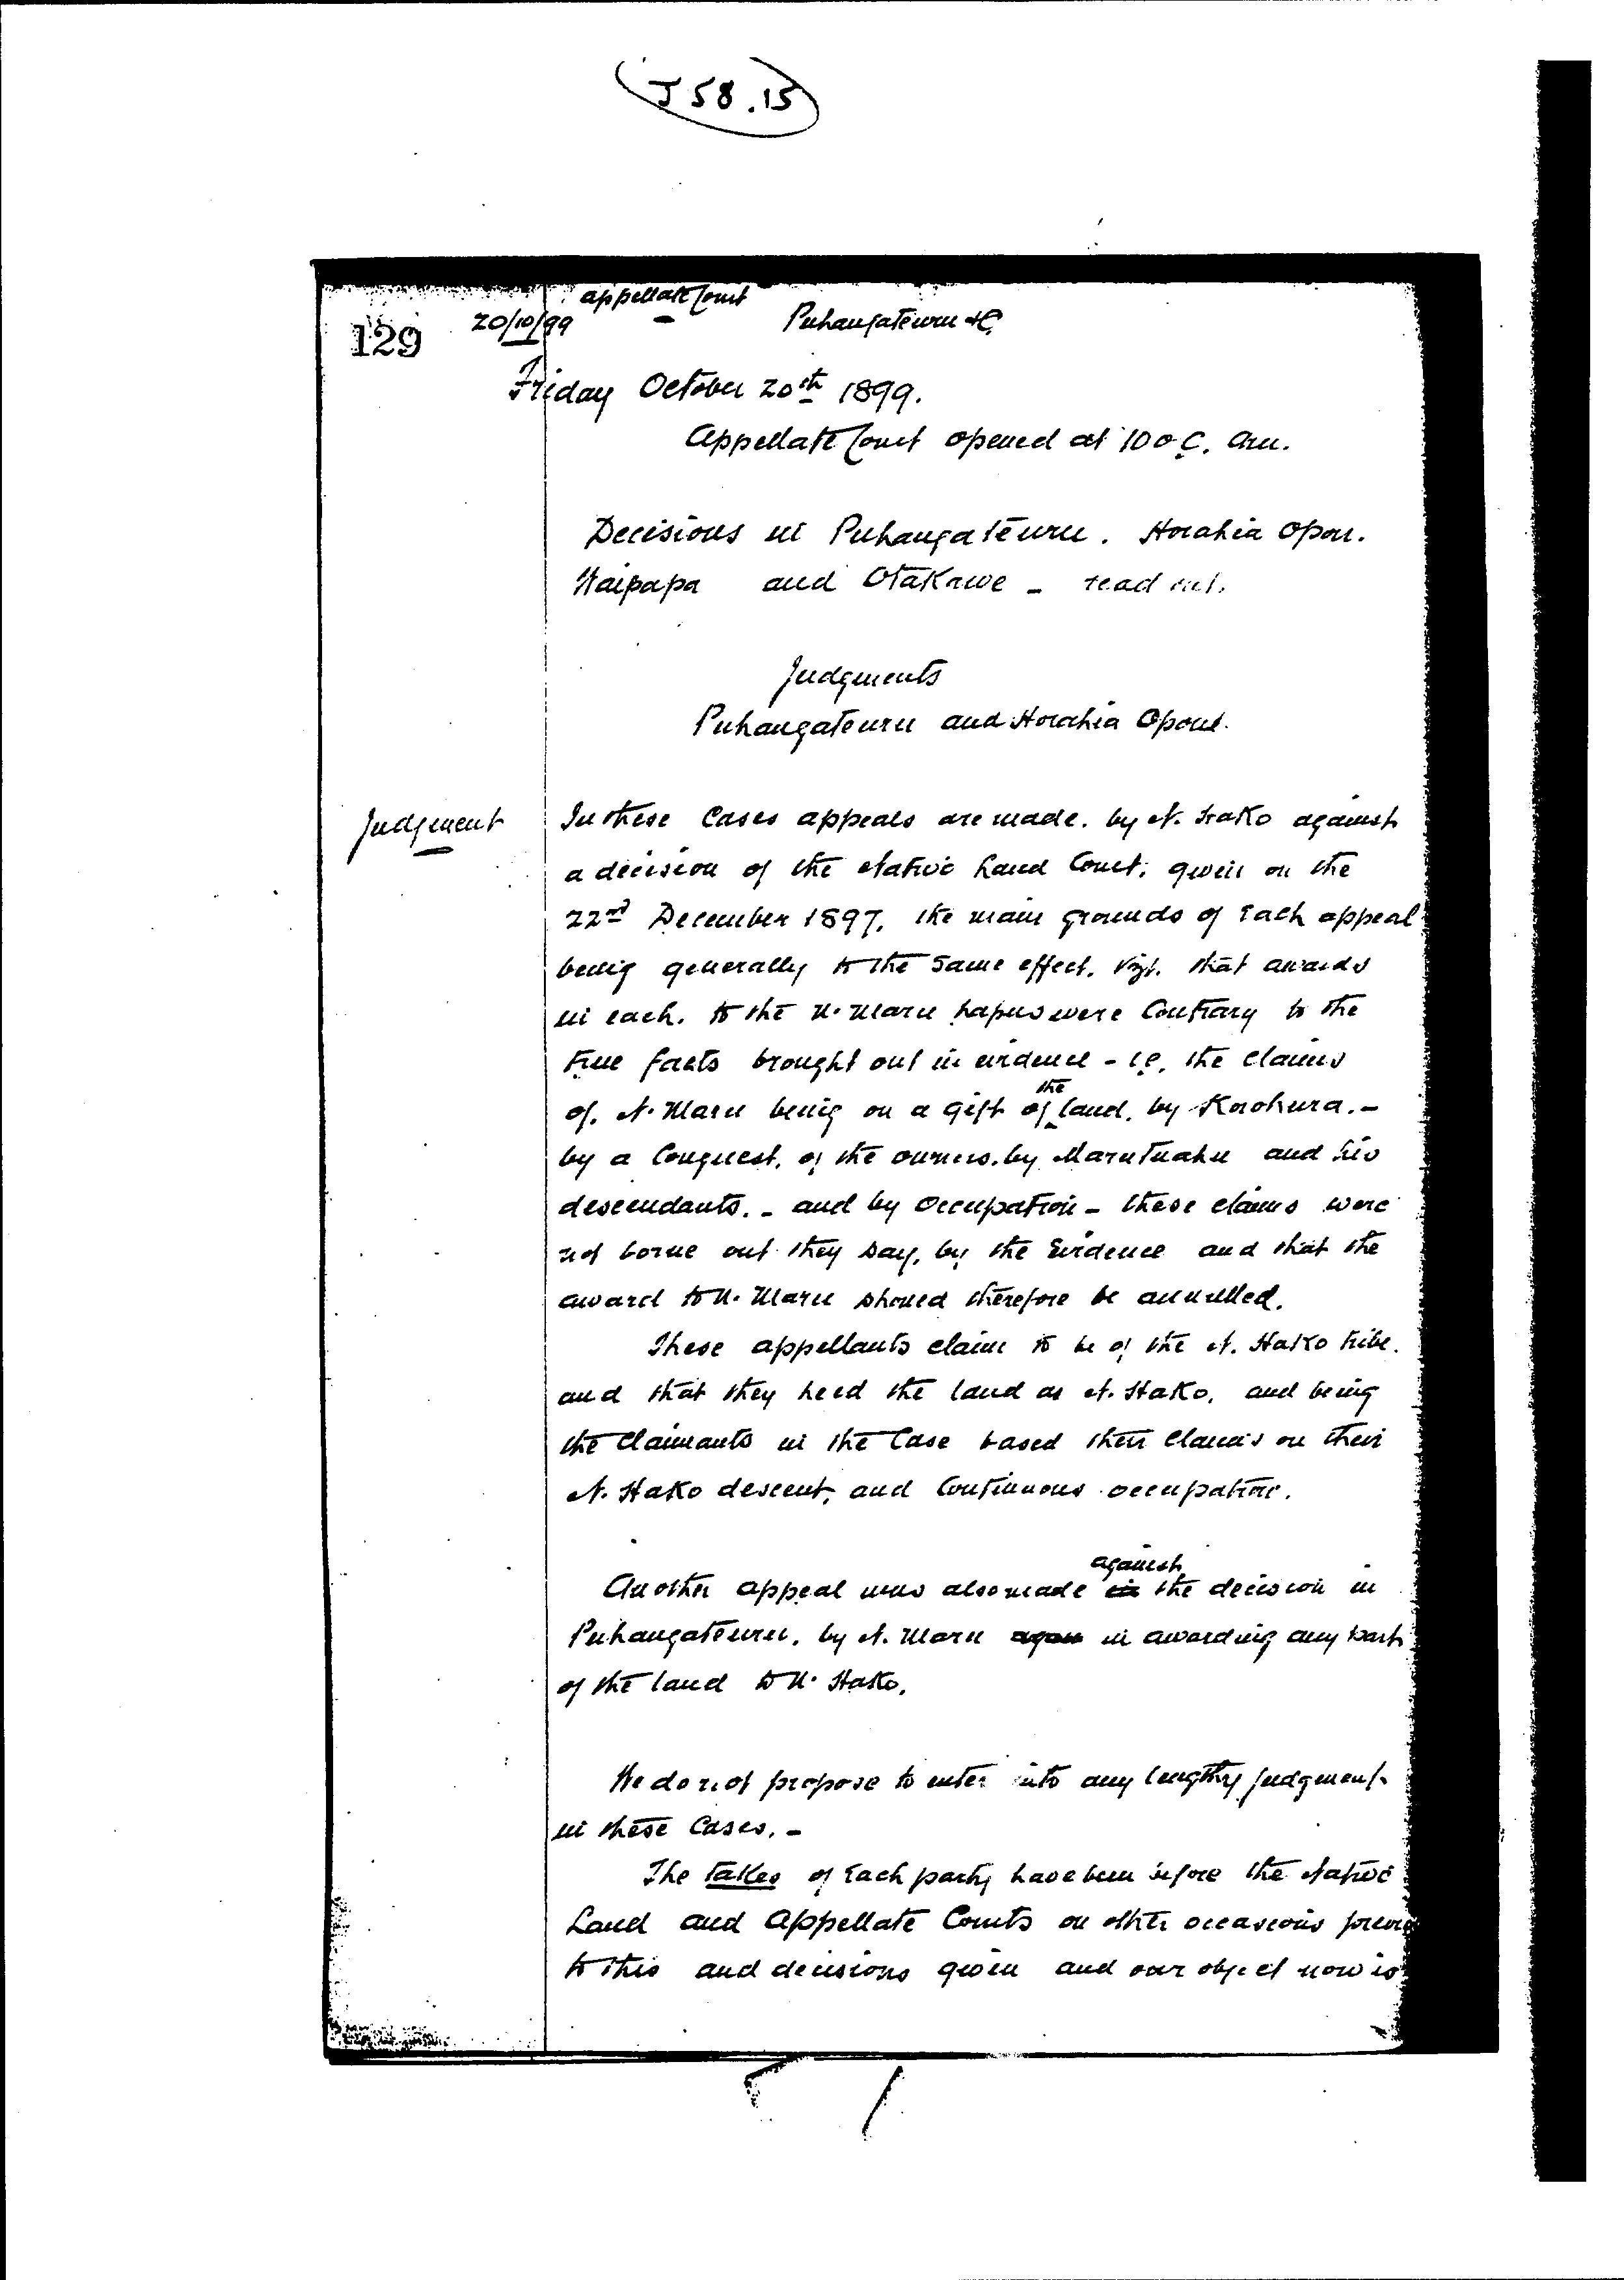 J 58.15
Appellate Court
129 20/10/99 Puhangateuru &c
Friday October 20th 1899.
Appellate Court opened at 10 o.c. am.
Decisions in Puhangateuru. Horahia Opou.
Waipapa and Otakawe - read out.
Judgments
Puhangateuru and Horahia Opou.
Judgement
In these Cases appeals are made. by N. Hako against
a decision of the Native Land Court. given on the
22nd December 1897. the main grounds of each appeal
being generally to the same effect. vizt. that awards
in each. to the N. Maru hapus were Contrary to the
true facts brought out in evidence - i.e. the claims
of. N. Maru being on a gift of the land. by Korohura. -
by a Conquest. of the owners. by Marutuahu and his
descendants. - and by Occupation - these claims were
not borne out they say, by the Evidence and that the
award to N. Maru should therefore be annulled.
These appellants claim to be of the N. Hako tribe.
and that they held the land as N. Hako. and being
the Claimants in the Case based their Claims on their
N. Hako descent, and Continuous occupation.
Another appeal was also made in against the decision in
Puhangateuru. by N. Maru again in awarding any part
of the land to N. Hako.
We do not propose to enter into any lengthy judgment
in these Cases. -
The takes of Each party have been before the Native
Land and Appellate Courts on other occasions
to this and decisions given and our object now is